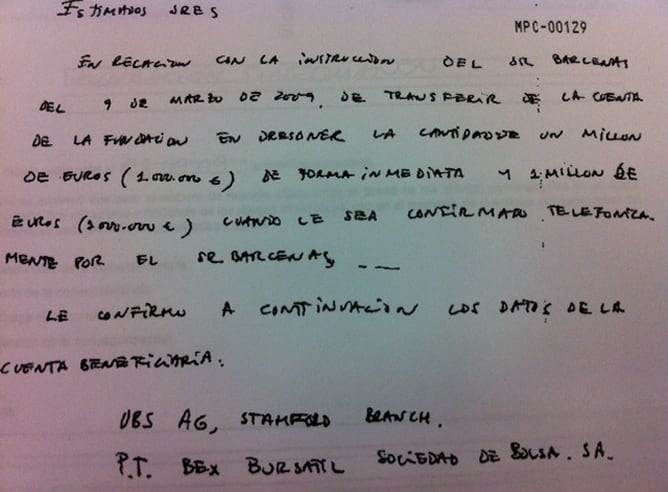 ESTIMADOS SRES
MPC-00129
EN RELACION CON LA INSTRUCCION DEL SR BARCENAS
DEL 9 DE MARZO DE 2009, DE TRANSFERIR DE LA CUENTA
DE LA FUNDACION EN DRESDNER LA CANTIDAD DE UN MILLON
DE EUROS (1.000.000 €) DE FORMA INMEDIATA Y 1 MILLON DE
EUROS (1000.000 €) CUANDO LE SEA CONFIRMADO TELEFONICA.
MENTE POR EL SR BARCENAS, ---
LE CONFIRMO A CONTINUACION LOS DATOS DE LA
CUENTA BENEFICIARIA.
UBS AG, STAMFORD BRANCH.
P.T. BEX BURSATIL SOCIEDAD DE BOLSA. SA.